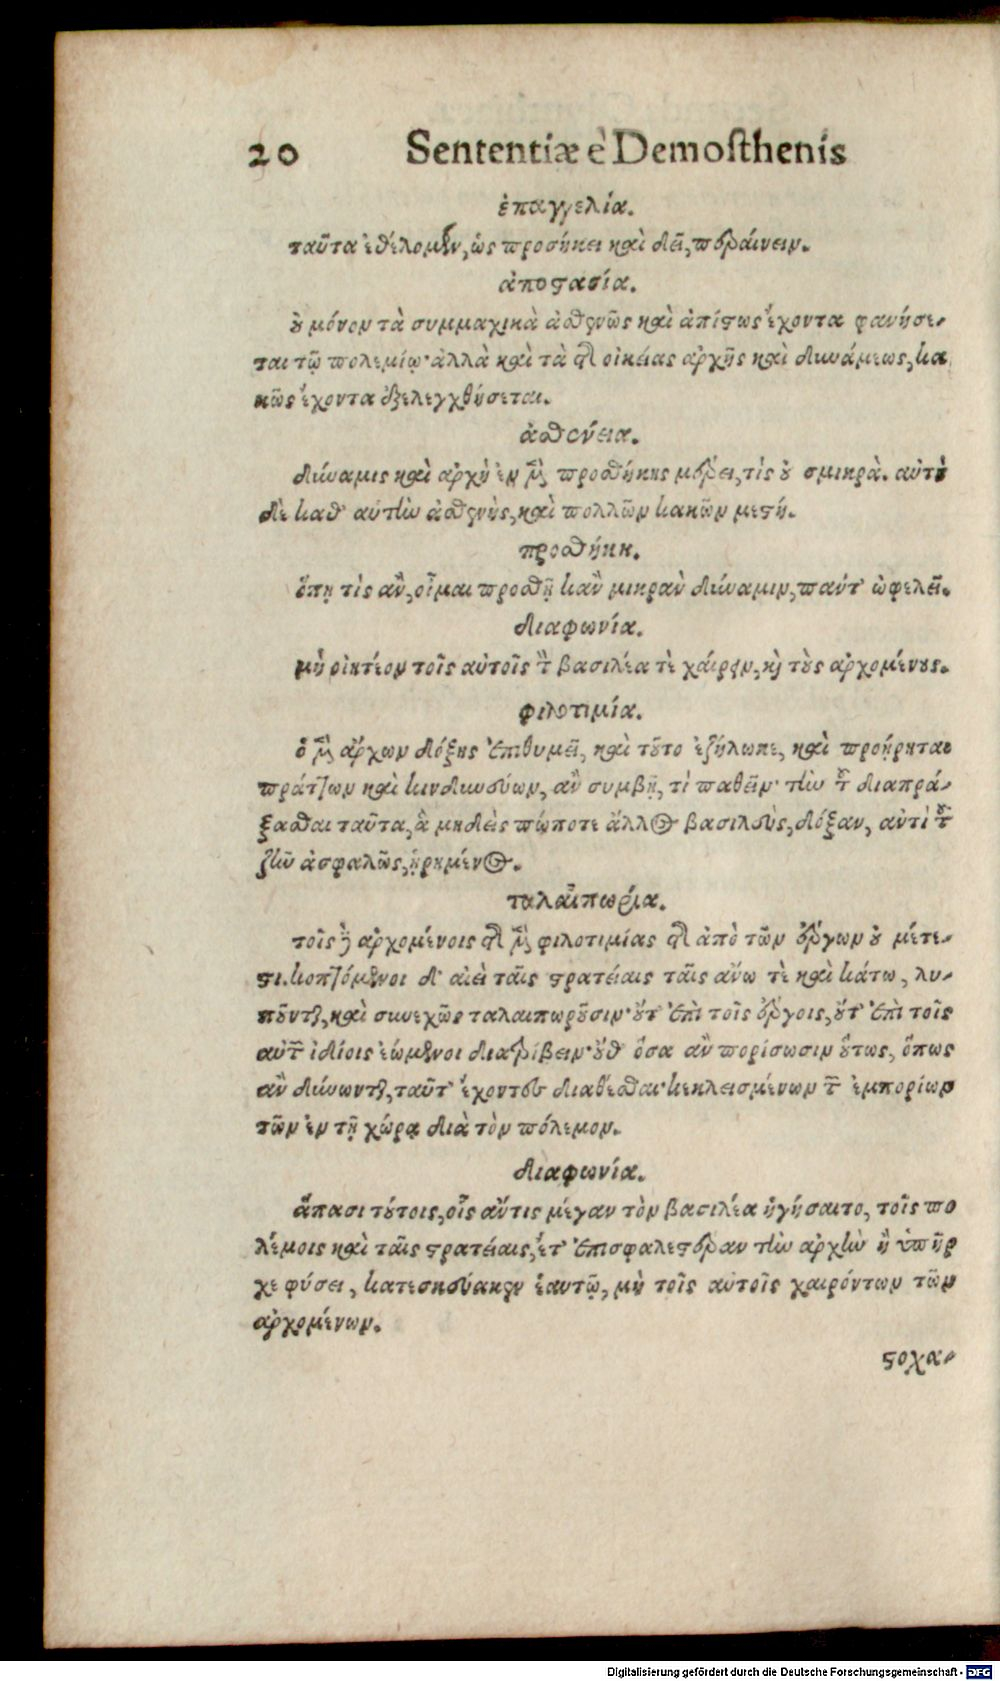 20 Sententiæ è Demosthenis
ἐπαγγελία.
ταῦτα ἐθέλομεν, ὡς προσήκει καὶ δεῖ, περαίνειν.
ἀποστασία.
οὐ μόνον τὰ συμμαχικὰ ἀσθενῶς καὶ ἀπίστως ἔχοντα φανήσε-
ται τῷ πολεμίῳ· ἀλλὰ καὶ τὰ τῆς οἰκείας ἀρχῆς καὶ δυνάμεως, κα
κῶς ἔχοντα ἐξελεγχθήσεται.
ἀσθένεια.
δύναμις καὶ ἀρχὴ ἐν μὲν προσθήκης μέρει, τὶς οὐ σμικρὰ. αὐτὴ
δὲ καθ' αὑτὴν ἀσθενὴς, καὶ πολλῶν κακῶν μεστή.
προσθήκη.
ὅπῃ τὶς ἂν, οἶμαι προσθῇ κἂν μικρὰν δύναμιν, πάντ' ὠφελεῖ.
διαφωνία.
μὴ οἰητέον τοῖς αὐτοῖς τὸν βασιλέα τὲ χαίρειν, καὶ τοὺς ἀρχομένους.
φιλοτιμία.
ὁ μὲν ἄρχων δόξης ἐπιθυμεῖ, καὶ τοῦτο ἐζήλωκε, καὶ προῄρηται
πράττων καὶ κινδυνεύων, ἂν συμβῇ, τὶ παθεῖν· τὴν τοῦ διαπρά-
ξασθαι ταῦτα, ἃ μηδεὶς πώποτε ἄλλος βασιλεὺς, δόξαν, ἀντὶ τοῦ
ζῆν ἀσφαλῶς, ᾑρημένος.
ταλαιπωρία.
τοῖς δὲ ἀρχομένοις τῆς μὲν φιλοτιμίας τῆς ἀπὸ τῶν ἔργων οὐ μέτε-
στι. κοπτόμενοι δ' αἰεὶ ταῖς στρατείαις ταῖς ἄνω τὲ καὶ κάτω, λυ-
ποῦνται, καὶ συνεχῶς ταλαιπωροῦσιν· οὔτ' ἐπὶ τοῖς ἔργοις, οὔτ' ἐπὶ τοῖς
αὑτῶν ἰδίοις ἐώμενοι διατρίβειν· οὔθ' ὅσα ἂν πορίσωσιν οὕτως, ὅπως
ἂν δύνωνται, ταῦτ' ἔχοντες διαθέσθαι· κεκλεισμένων τῶν ἐμπορίων
τῶν ἐν τῇ χώρᾳ διὰ τὸν πόλεμον.
διαφωνία.
ἅπασι τούτοις, οἷς ἄν τις μέγαν τὸν βασιλέα ἡγήσαιτο, τοῖς πο
λέμοις καὶ ταῖς στρατείαις, ἔτ' ἐπισφαλεστέραν τὴν ἀρχὴν ἢ ὑπῆρ
χε φύσει, κατεσκεύακεν ἑαυτῷ, μὴ τοῖς αὐτοῖς χαιρόντων τῶν
ἀρχομένων.
στοχα-
Digitalisierung gefördert durch die Deutsche Forschungsgemeinschaft - DFG